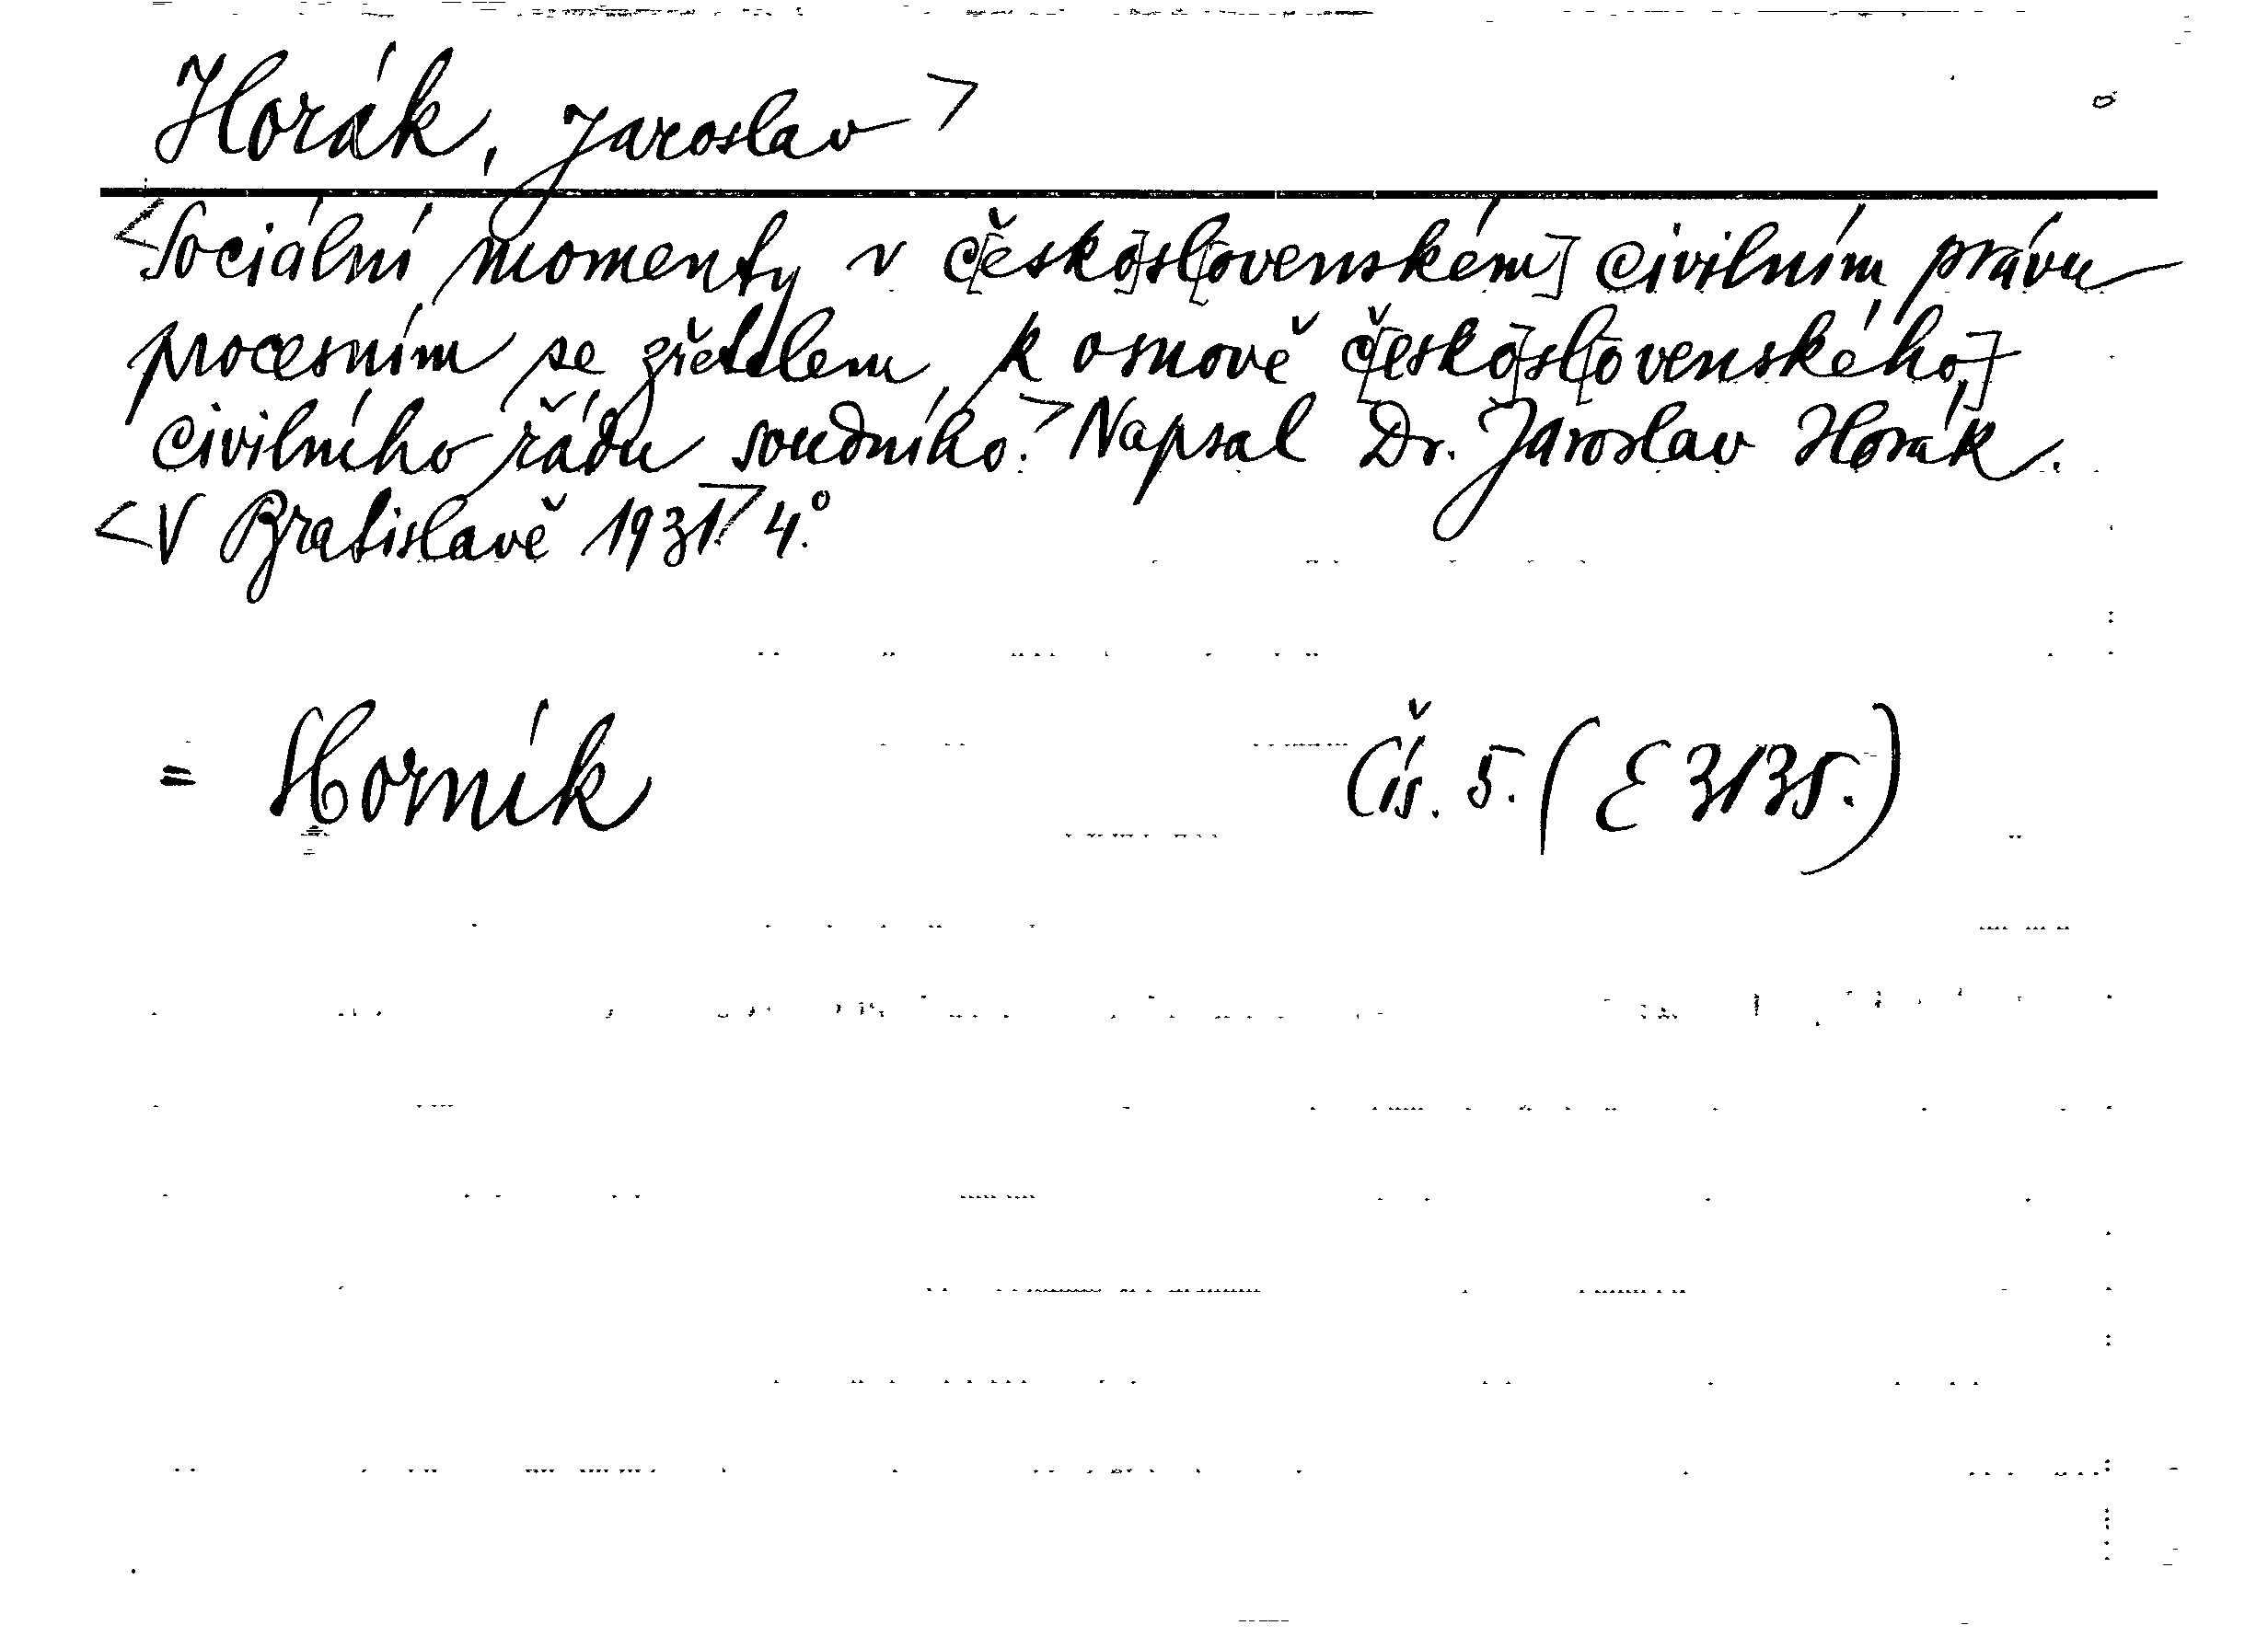 Horák, Jaroslav>
<Sociální momenty v č[esko]sl[ovenském] civilním právu
procesním se zřetelem k osnově č[esko]sl[ovenského]
civilního řádu soudního.> Napsal Dr. Jaroslav Horák.
<V Bratislavě 1931.> 4.°
= Horník Čís. 5. (E 3135.)